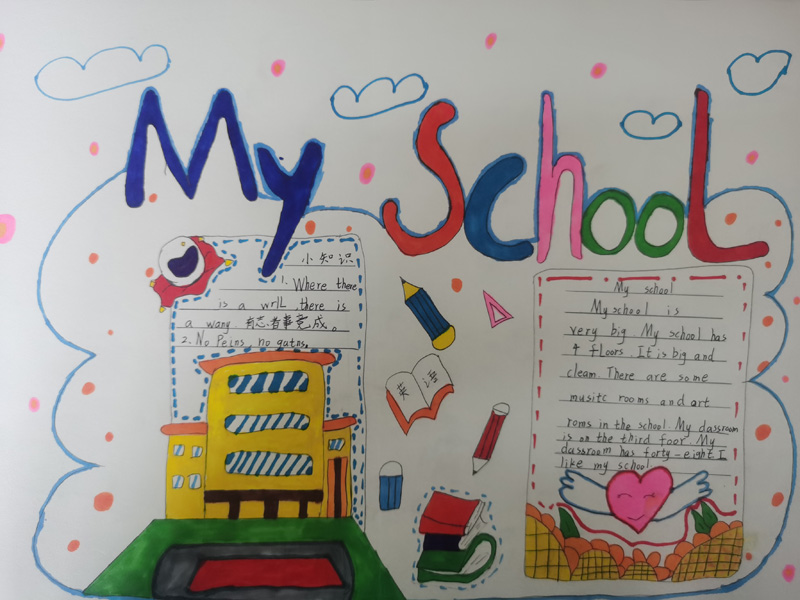 My School
小知识
1. Where there
is a wrlL there is
a wang 有志者事竟成。
2. No Peins no gutns.
英语
My school
My school is
very big. My school has
4 floors. It is big and
cleam. There are some
musitc rooms and art
roms in the school. My dassroom
is on the third foor. My
dassroom has forty-eight. I
like my school.